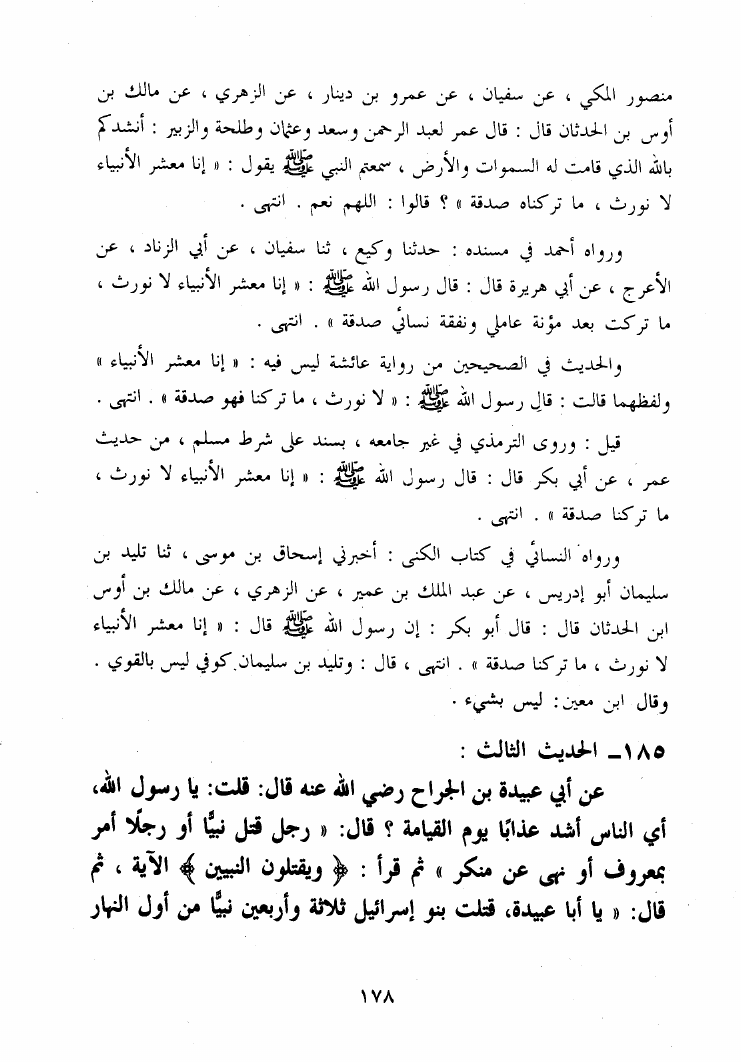 منصور المكي ، عن سفيان ، عن عمرو بن دينار ، عن الزهري ، عن مالك بن
أوس بن الحدثان قال : قال عمر لعبد الرحمن وسعد وعثمان وطلحة والزبير : أنشدكم
بالله الذي قامت له السموات والأرض ، سمعتم النبي ﷺ يقول : « إنا معشر الأنبياء
لا نورث ، ما تركناه صدقة » ؟ قالوا : اللهم نعم . انتهى .
ورواه أحمد في مسنده : حدثنا وكيع ، ثنا سفيان ، عن أبي الزناد ، عن
الأعرج ، عن أبي هريرة قال : قال رسول الله ﷺ : « إنا معشر الأنبياء لا نورث ،
ما تركت بعد مؤنة عاملي ونفقة نسائي صدقة » . انتهى .
والحديث في الصحيحين من رواية عائشة ليس فيه : « إنا معشر الأنبياء »
ولفظهما قالت : قال رسول الله ﷺ : « لا نورث ، ما تركنا فهو صدقة » . انتهى .
قيل : وروى الترمذي في غير جامعه ، بسند على شرط مسلم ، من حديث
عمر ، عن أبي بكر قال : قال رسول الله ﷺ : « إنا معشر الأنبياء لا نورث ،
ما تركنا صدقة » . انتهى .
ورواه النسائي في كتاب الكنى : أخبرني إسحاق بن موسى ، ثنا تليد بن
سليمان أبو إدريس ، عن عبد الملك بن عمير ، عن الزهري ، عن مالك بن أوس
ابن الحدثان قال : قال أبو بكر : إن رسول الله ﷺ قال : « إنا معشر الأنبياء
لا نورث ، ما تركنا صدقة » . انتهى ، قال : وتليد بن سليمان كوفي ليس بالقوي .
وقال ابن معين : ليس بشيء .
١٨٥ـ الحديث الثالث :
عن أبي عبيدة بن الجراح رضي الله عنه قال: قلت: يا رسول الله،
أي الناس أشد عذابًا يوم القيامة ؟ قال: « رجل قتل نبيًّا أو رجلًا أمر
بمعروف أو نهى عن منكر » ثم قرأ : ﴿ ويقتلون النبيين ﴾ الآية ، ثم
قال: « يا أبا عبيدة، قتلت بنو إسرائيل ثلاثة وأربعين نبيًّا من أول النهار
١٧٨